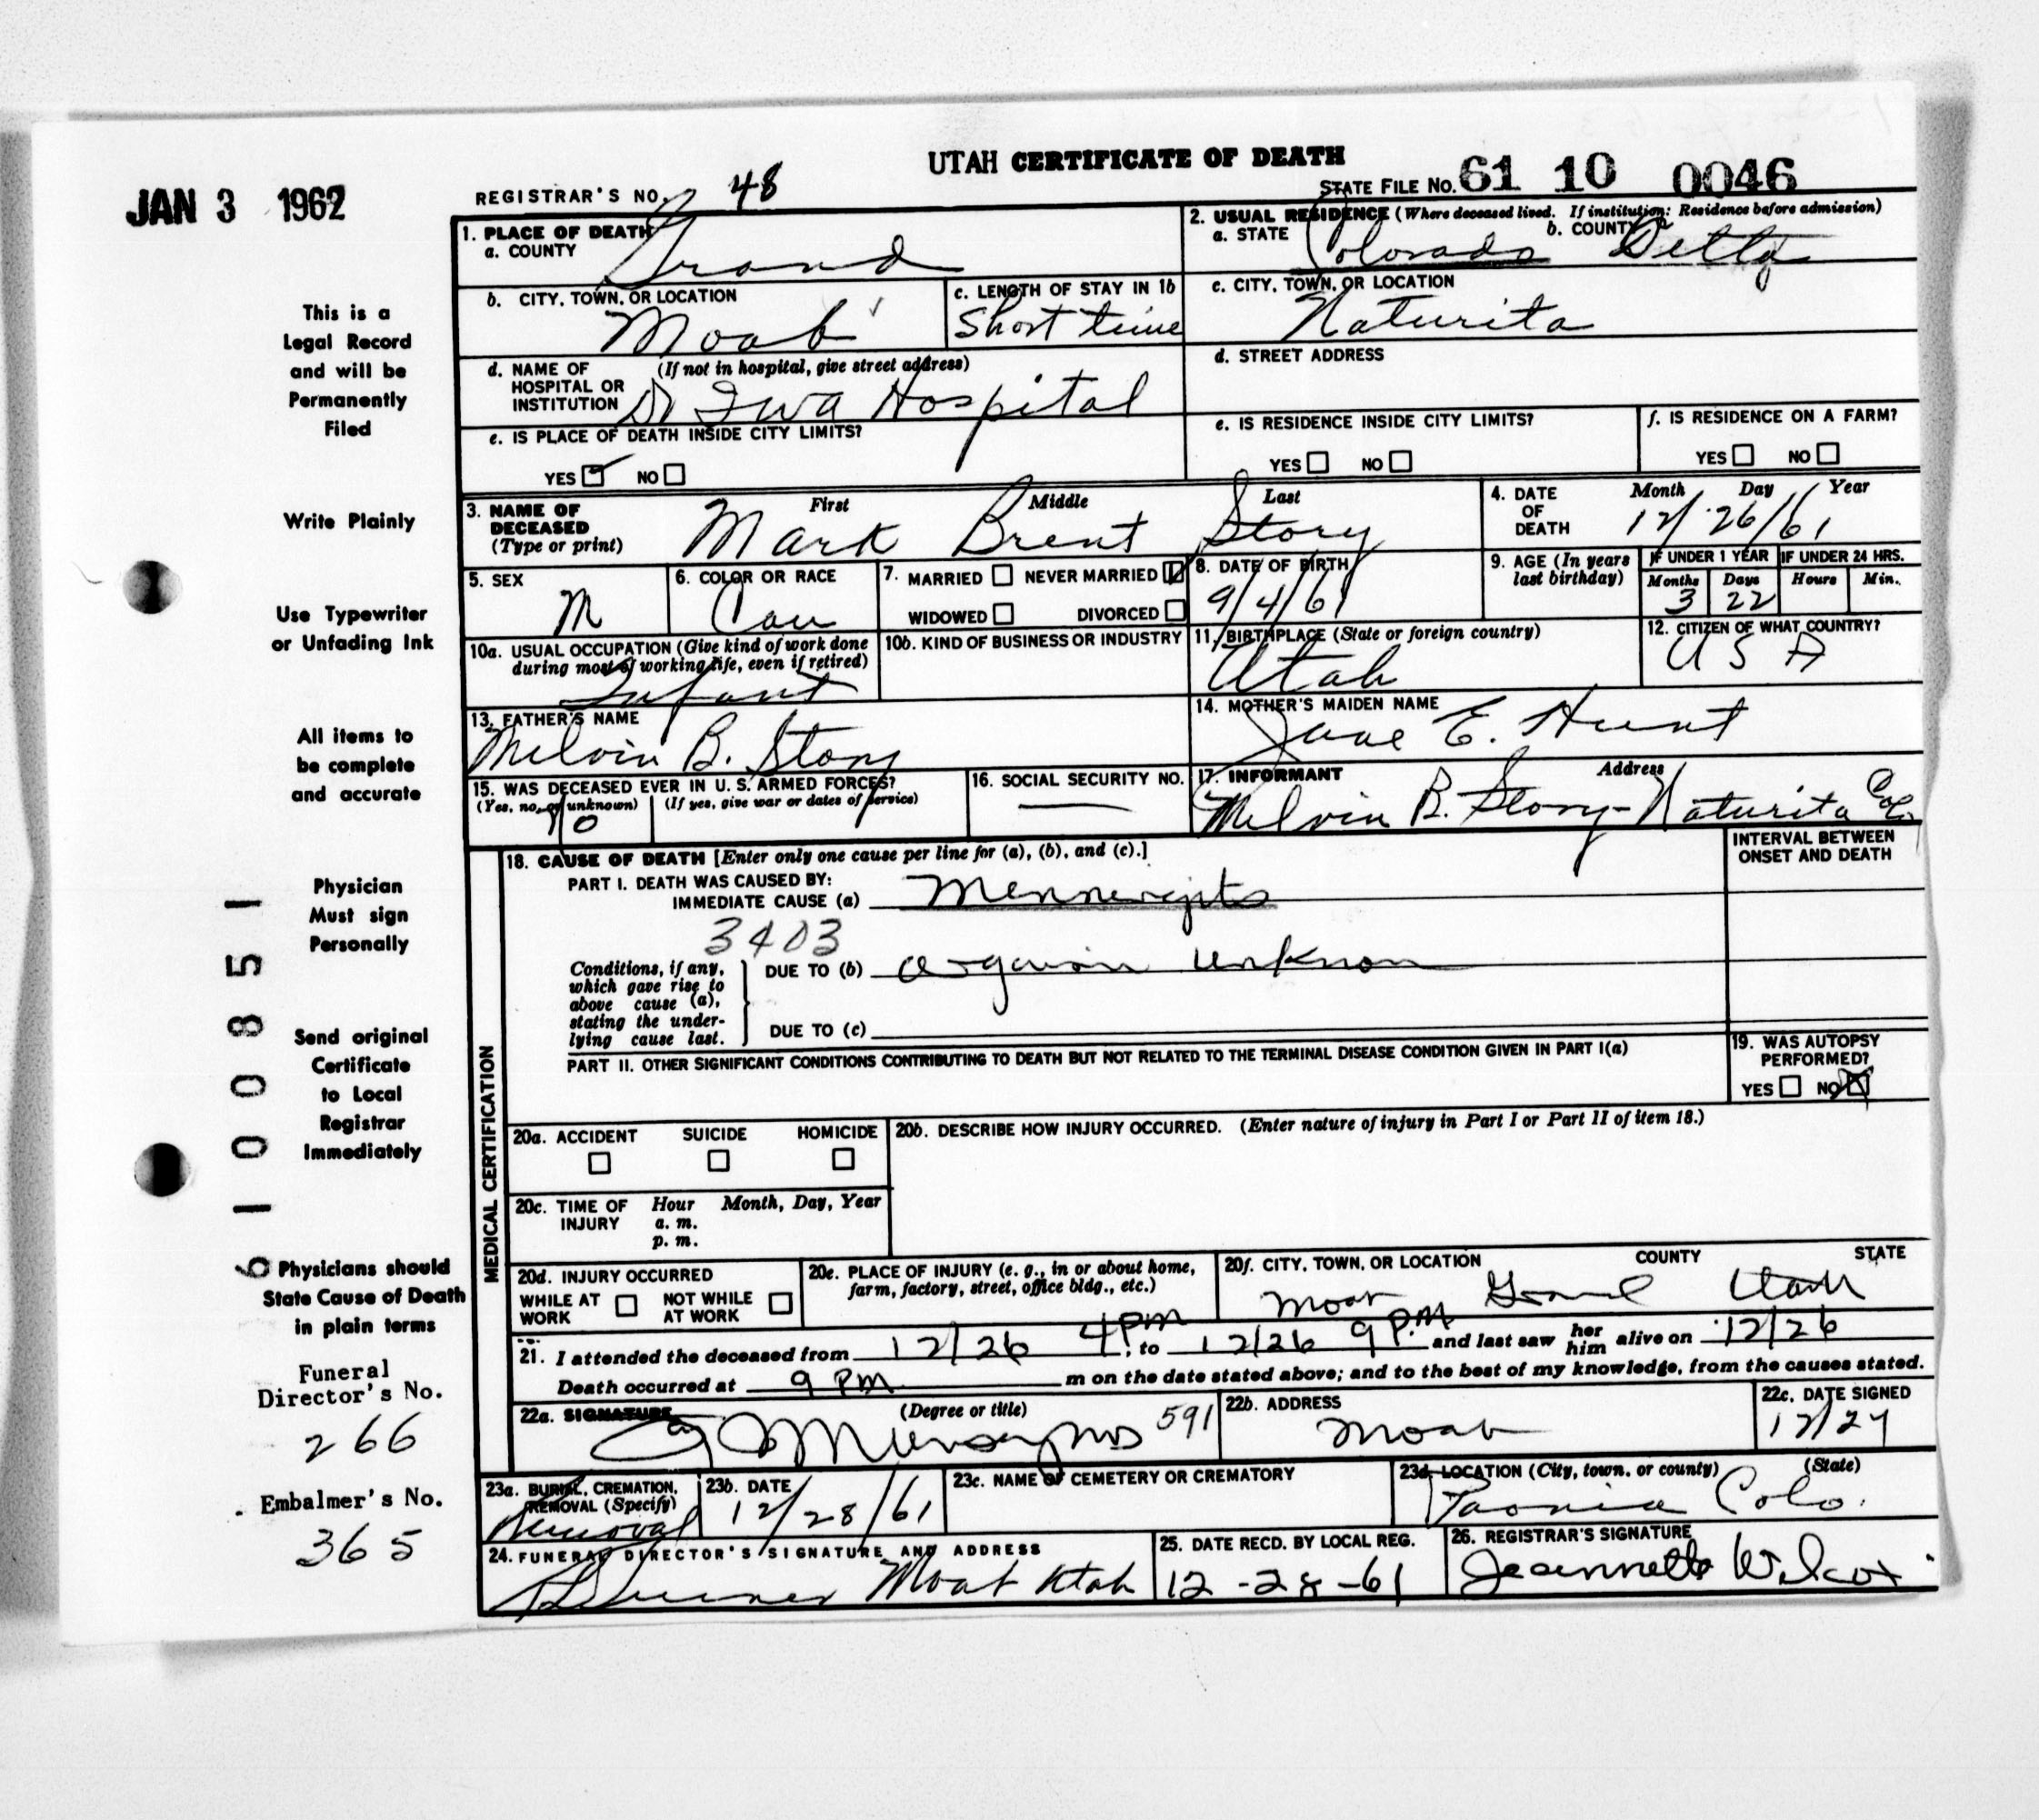 UTAH CERTIFICATE OF DEATH
JAN 3 1962
REGISTRAR'S NO. 48
STATE FILE NO. 61 10 0046
1. PLACE OF DEATH
a. COUNTY Grand
2. USUAL RESIDENCE (Where deceased lived. If institution: Residence before admission)
a. STATE Colorado b. COUNTY Delta
b. CITY, TOWN, OR LOCATION Moab
c. LENGTH OF STAY IN 1b Short time
c. CITY, TOWN, OR LOCATION Naturita
d. NAME OF HOSPITAL OR INSTITUTION (If not in hospital, give street address) Hospital
d. STREET ADDRESS
e. IS PLACE OF DEATH INSIDE CITY LIMITS?
YES ☑ NO ☐
e. IS RESIDENCE INSIDE CITY LIMITS?
YES ☐ NO ☐
f. IS RESIDENCE ON A FARM?
YES ☐ NO ☐
3. NAME OF DECEASED (Type or print)
First Middle Last
Mark Brent Story
4. DATE OF DEATH
Month Day Year
12/26/61
5. SEX M
6. COLOR OR RACE Cau
7. MARRIED ☐ NEVER MARRIED ☑
WIDOWED ☐ DIVORCED ☐
8. DATE OF BIRTH 9/4/61
9. AGE (In years last birthday)
IF UNDER 1 YEAR IF UNDER 24 HRS.
Months 3 Days 22 Hours Min.
10a. USUAL OCCUPATION (Give kind of work done during most of working life, even if retired)
Infant
10b. KIND OF BUSINESS OR INDUSTRY
11. BIRTHPLACE (State or foreign country) Utah
12. CITIZEN OF WHAT COUNTRY? USA
13. FATHER'S NAME
Melvin B. Story
14. MOTHER'S MAIDEN NAME
E. Hunt
15. WAS DECEASED EVER IN U. S. ARMED FORCES?
(Yes, no, or unknown) (If yes, give war or dates of service)
No
16. SOCIAL SECURITY NO.
17. INFORMANT Address
Melvin B. Story - Naturita Colo.
MEDICAL CERTIFICATION
18. CAUSE OF DEATH [Enter only one cause per line for (a), (b), and (c).]
INTERVAL BETWEEN ONSET AND DEATH
PART I. DEATH WAS CAUSED BY:
IMMEDIATE CAUSE (a)
3403
Conditions, if any, which gave rise to above cause (a), stating the underlying cause last.
DUE TO (b)
DUE TO (c)
PART II. OTHER SIGNIFICANT CONDITIONS CONTRIBUTING TO DEATH BUT NOT RELATED TO THE TERMINAL DISEASE CONDITION GIVEN IN PART I(a)
19. WAS AUTOPSY PERFORMED?
YES ☐ NO ☒
20a. ACCIDENT SUICIDE HOMICIDE
☐ ☐ ☐
20b. DESCRIBE HOW INJURY OCCURRED. (Enter nature of injury in Part I or Part II of item 18.)
20c. TIME OF INJURY Hour Month, Day, Year
a. m.
p. m.
20d. INJURY OCCURRED
WHILE AT WORK ☐ NOT WHILE AT WORK ☐
20e. PLACE OF INJURY (e. g., in or about home, farm, factory, street, office bldg., etc.)
20f. CITY, TOWN, OR LOCATION COUNTY STATE
Moab Grand Utah
21. I attended the deceased from 12/26 4 PM, to 12/26 9 P.M and last saw her him alive on 12/26
Death occurred at 9 PM m on the date stated above; and to the best of my knowledge, from the causes stated.
22a. SIGNATURE (Degree or title)
591
22b. ADDRESS
Moab
22c. DATE SIGNED
12/27
23a. BURIAL, CREMATION, REMOVAL (Specify)
Removal
23b. DATE
12/28/61
23c. NAME OF CEMETERY OR CREMATORY
23d. LOCATION (City, town, or county) (State)
Paonia Colo.
24. FUNERAL DIRECTOR'S SIGNATURE AND ADDRESS
Moab Utah
25. DATE RECD. BY LOCAL REG.
12-28-61
26. REGISTRAR'S SIGNATURE
Jeannette Wilcox
This is a
Legal Record
and will be
Permanently
Filed
Write Plainly
Use Typewriter
or Unfading Ink
All items to
be complete
and accurate
Physician
Must sign
Personally
Send original
Certificate
to Local
Registrar
Immediately
Physicians should
State Cause of Death
in plain terms
Funeral
Director's No.
266
Embalmer's No.
365
6100851